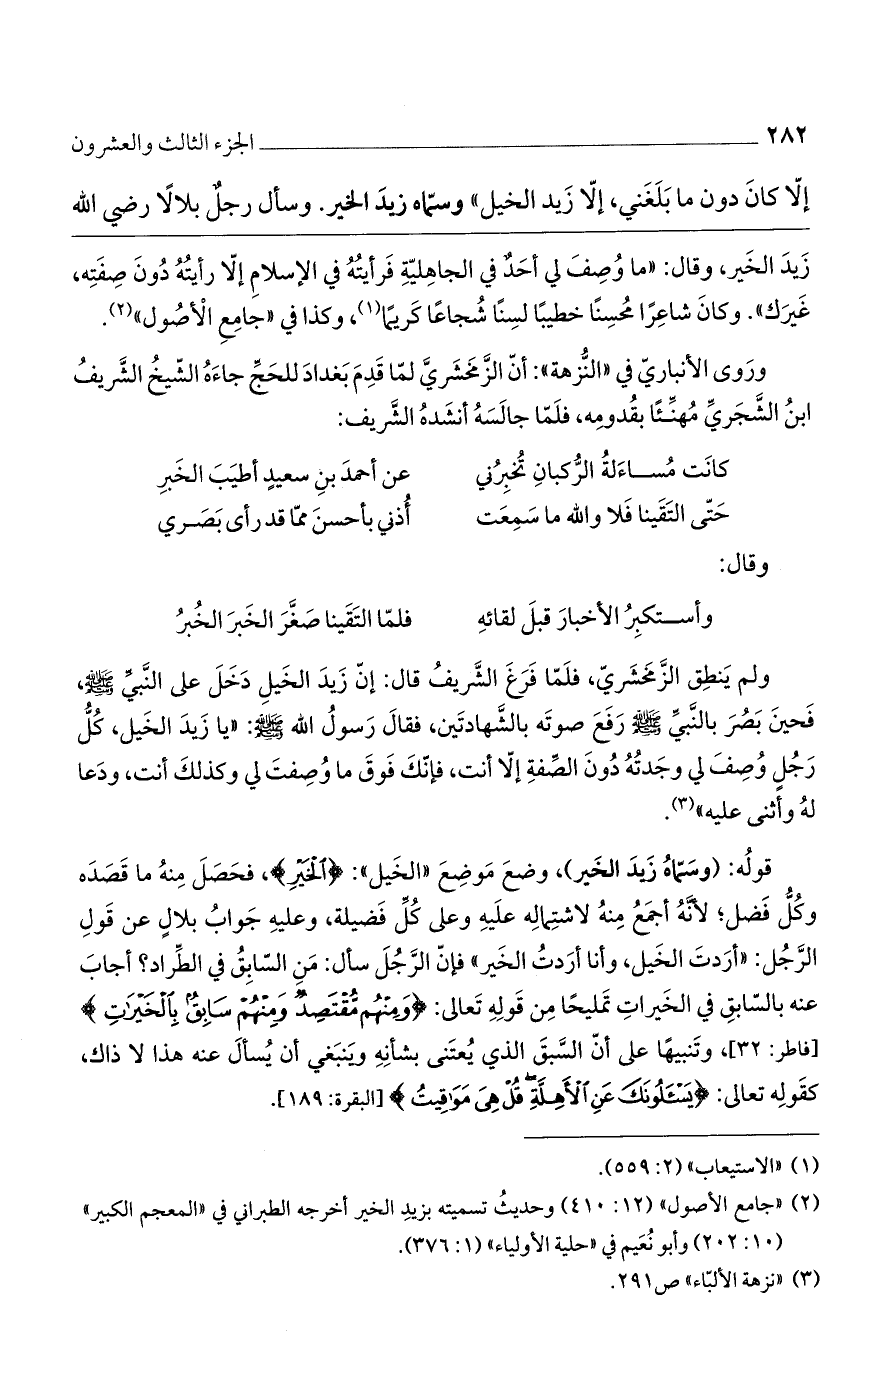 ٢٨٢ الجزء الثالث والعشرون
إلّا كانَ دون ما بَلَغَني، إلّا زَيد الخيل» وسمّاه زيدَ الخير. وسأل رجلٌ بلالًا رضي الله
زَيدَ الخَير، وقال: «ما وُصِفَ لي أحَدٌ في الجاهِليّةِ فَرأيتُهُ في الإسلامِ إلّا رأيتُهُ دُونَ صِفَتِه،
غَيرَك». وكانَ شاعِرًا مُحسِنًا خطيبًا لسِنًا شُجاعًا كَريمًا(١)، وكذا في «جامِعِ الْأصُول»(٢).
ورَوى الأنباريّ في «النُّزهة»: أنّ الزَّمَخشَريَّ لمّا قَدِمَ بَغدادَ للحَجِّ جاءَهُ الشّيخُ الشَّريفُ
ابنُ الشَّجَريِّ مُهنِّئًا بقُدومِه، فلَمّا جالَسَهُ أنشَدهُ الشَّريف:
كانَت مُســاءَلةُ الرُّكبانِ تُخبِرُني عن أحمدَ بنِ سعيدٍ أطيَبَ الخَبرِ
حَتّى التَقَينا فَلا والله ما سَمِعَت أُذني بأحسنَ ممّا قد رأى بَصَـري
وقال:
وأســتكبِرُ الأخبارَ قبلَ لقائهِ فلمّا التَقَينا صَغَّرَ الخَبَرَ الخُبرُ
ولم يَنطِق الزَّمَخشَريّ، فلَمّا فَرَغَ الشَّريفُ قال: إنّ زَيدَ الخَيلِ دَخَلَ على النَّبيِّ ﷺ،
فَحينَ بَصُرَ بالنَّبيِّ ﷺ رَفَعَ صوتَه بالشَّهادتَين، فقالَ رَسولُ الله ﷺ: «يا زَيدَ الخَيل، كُلُّ
رَجُلٍ وُصِفَ لي وجَدتُهُ دُونَ الصِّفةِ إلّا أنت، فإنّكَ فَوقَ ما وُصِفتَ لي وكذلكَ أنت، ودَعا
لهُ وأثنى عليه»(٣).
قولُه: (وسَمّاهُ زَيدَ الخَير)، وضعَ مَوضِعَ «الخَيل»: ﴿ٱلۡخَيۡرِ﴾، فحَصَلَ مِنهُ ما قَصَدَه
وكُلُّ فَضل؛ لأنَّهُ أجمَعُ مِنهُ لاشتِمالِه علَيهِ وعلى كُلِّ فَضيلة، وعليهِ جَوابُ بلالٍ عن قَولِ
الرَّجُل: «أرَدتَ الخَيل، وأنا أردتُ الخَير» فإنّ الرَّجُلَ سأل: مَنِ السّابِقُ في الطِّراد؟ أجابَ
عنه بالسّابقِ في الخَيراتِ تَمليحًا مِن قَولِه تَعالى: ﴿وَمِنۡهُم مُّقۡتَصِدٞ وَمِنۡهُمۡ سَابِقُۢ بِٱلۡخَيۡرَٰتِ ﴾
[فاطر: ٣٢]، وتَنبيهًا على أنّ السَّبقَ الذي يُعتَنى بشأنِهِ ويَنبَغي أن يُسألَ عنه هذا لا ذاك،
كقَولِه تعالى: ﴿يَسۡـَٔلُونَكَ عَنِ ٱلۡأَهِلَّةِۖ قُلۡ هِيَ مَوَٰقِيتُ ﴾ [البقرة: ١٨٩].
(١) «الاستيعاب» (٢: ٥٥٩).
(٢) «جامع الأصول» (١٢: ٤١٠) وحديثُ تسميته بزيدِ الخير أخرجه الطبراني في «المعجم الكبير»
(١٠: ٢٠٢) وأبو نُعَيم في «حلية الأولياء» (١: ٣٧٦).
(٣) «نزهة الألبّاء» ص٢٩١.